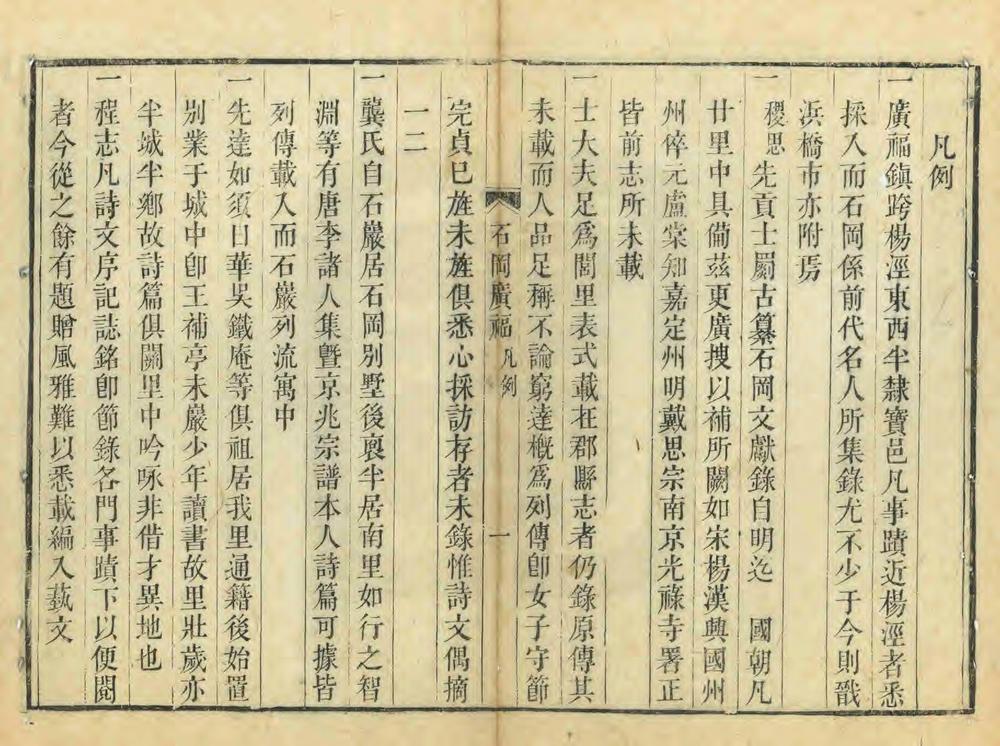 凡例
一廣福鎮跨楊涇東西半隸寶邑凡事蹟近楊涇者悉
採入而石岡係前代名人所集錄尤不少于今則戩
浜橋市亦附焉
一稷思先貢士屬古纂石岡文獻錄自明迄　國朝凡
廿里中具備茲更廣搜以補所闕如宋楊漢興國州
州倅元盧棠知嘉定州明戴思宗南京光祿寺署正
皆前志所未載
一士大夫足爲閭里表式載在郡縣志者仍錄原傳其
未載而人品足稱不論窮達槪爲列傳卽女子守節
石岡廣福　凡例　一
完貞已旌未旌俱悉心採訪存者未錄惟詩文偶摘
一二
一龔氏自石巖居石岡別墅後裒半居南里如行之智
淵等有唐李諸人集曁京兆宗譜本人詩篇可據皆
列傳載入而石巖列流寓中
一先達如須日華吳鐵庵等俱祖居我里通籍後始置
別業于城中卽王補亭未巖少年讀書故里壯歲亦
半城半鄉故詩篇俱關里中吟咏非借才異地也
一程志凡詩文序記誌銘卽節錄各門事蹟下以便閱
者今從之餘有題贈風雅難以悉載編入蓺文